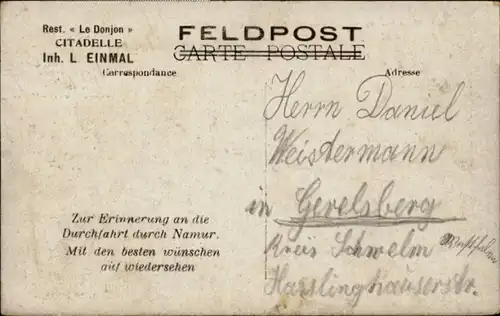 Rest. « Le Donjon »
CITADELLE
Inh. L. EINMAL
FELDPOST
CARTE POSTALE
Correspondance
Adresse
Herrn Daniel
Weistermann
in Gevelsberg
Kreis Schwelm Westfalen
Hasslinghauserstr.
Zur Erinnerung an die
Durchfahrt durch Namur.
Mit den besten wünschen
auf wiedersehen